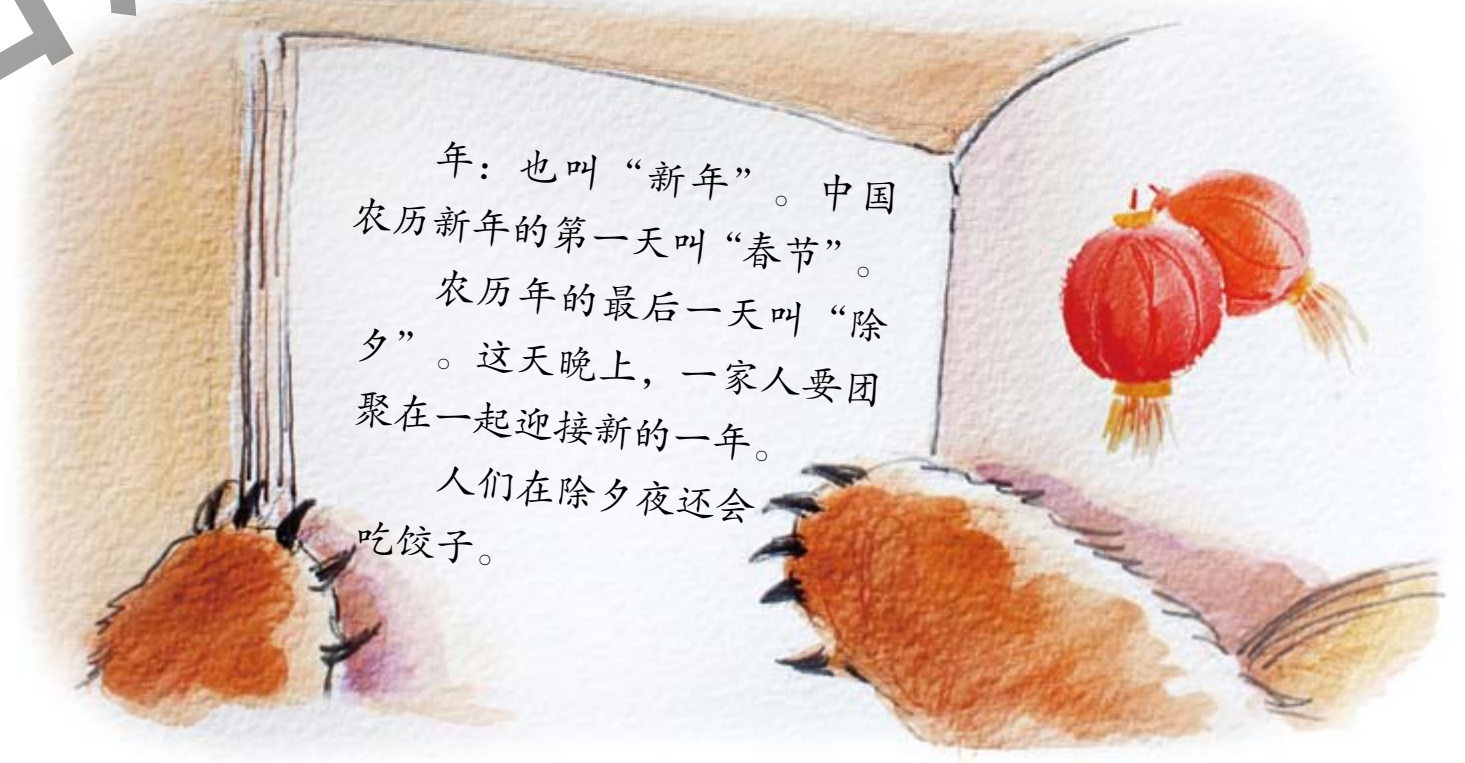 年：也叫“新年”。中国
农历新年的第一天叫“春节”。
农历年的最后一天叫“除
夕”。这天晚上，一家人要团
聚在一起迎接新的一年。
人们在除夕夜还会
吃饺子。